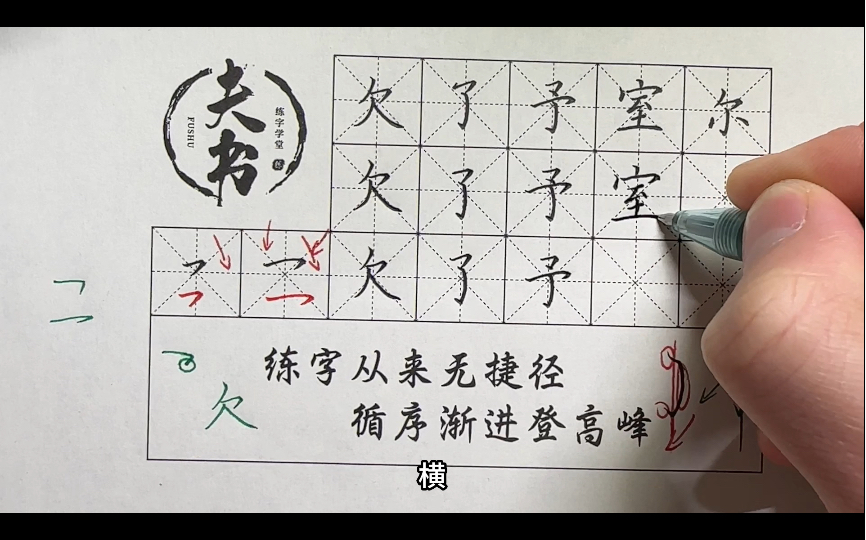 夫书
练字学堂
FUSHU
欠了予室尔
欠了予室
欠了予
练字从来无捷径
欠
循序渐进登高峰
横